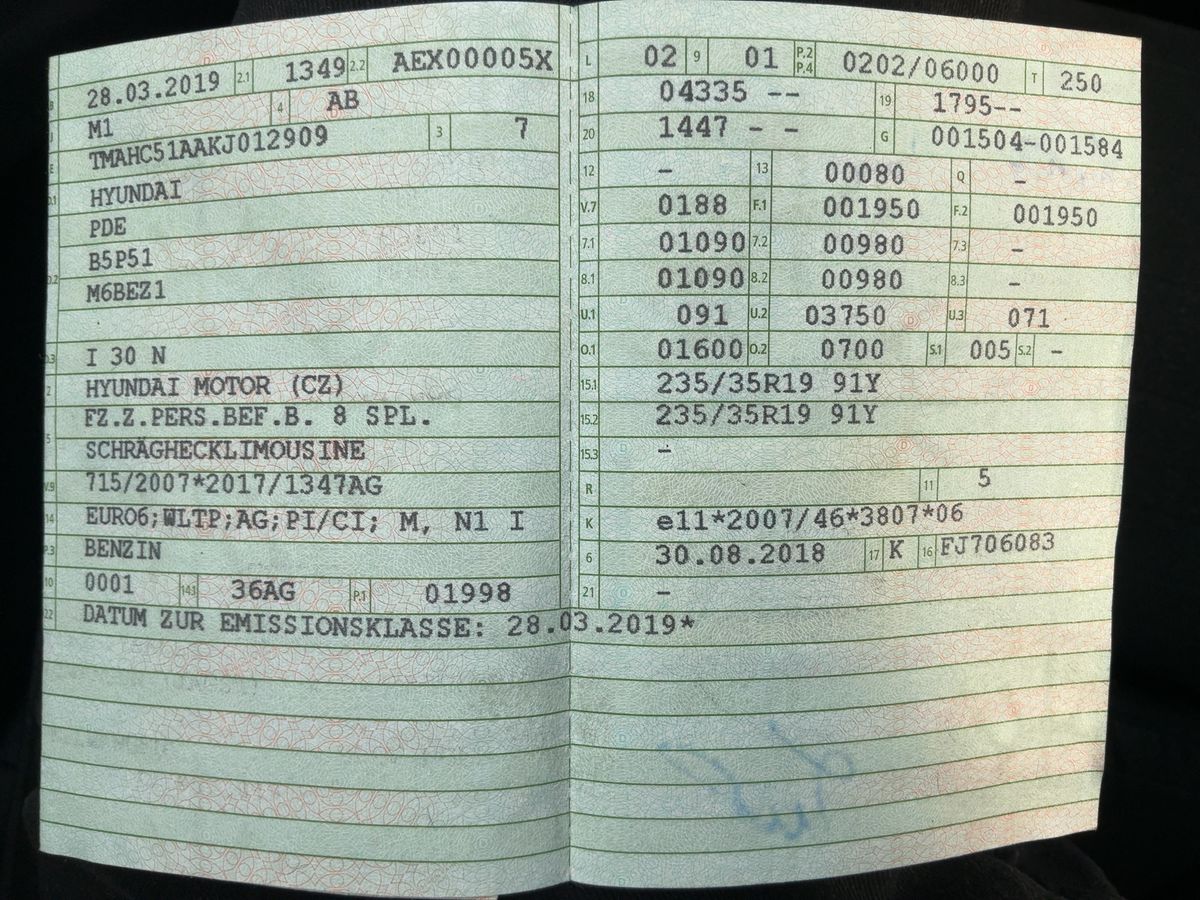 B 28.03.2019 2.1 1349 2.2 AEX00005X
J M1 4 AB
E TMAHC51AAKJ012909 3 7
D.1 HYUNDAI
PDE
D.2 B5P51
M6BEZ1
D.3 I 30 N
2 HYUNDAI MOTOR (CZ)
5 FZ.Z.PERS.BEF.B. 8 SPL.
SCHRÄGHECKLIMOUSINE
V.9 715/2007*2017/1347AG
14 EURO6;WLTP;AG;PI/CI; M, N1 I
P.3 BENZIN
10 0001 14.1 36AG P.1 01998
22 DATUM ZUR EMISSIONSKLASSE: 28.03.2019*
L 02 9 01 P.2 P.4 0202/06000 T 250
18 04335 -- 19 1795--
20 1447 - - G 001504-001584
12 - 13 00080 Q -
V.7 0188 F.1 001950 F.2 001950
7.1 01090 7.2 00980 7.3 -
8.1 01090 8.2 00980 8.3 -
U.1 091 U.2 03750 U.3 071
O.1 01600 O.2 0700 S.1 005 S.2 -
15.1 235/35R19 91Y
15.2 235/35R19 91Y
15.3 -
R 11 5
K e11*2007/46*3807*06
6 30.08.2018 17 K 16 FJ706083
21 -